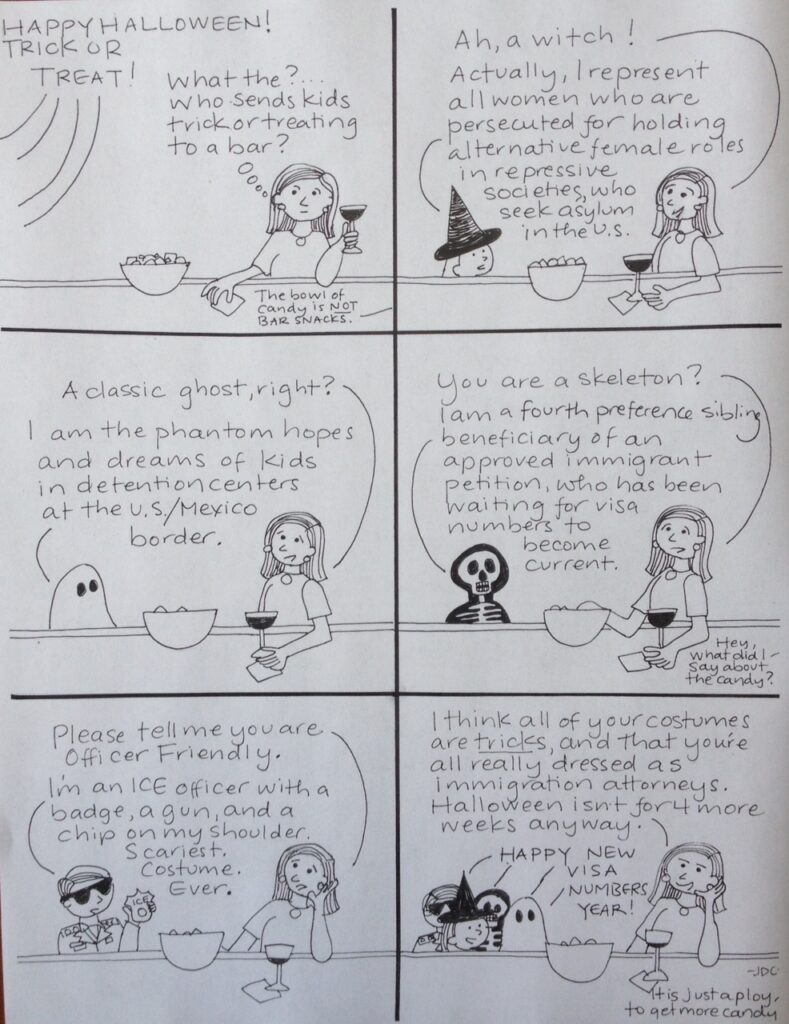 HAPPY HALLOWEEN!
TRICK OR
TREAT!
What the?...
Who sends kids
trick or treating
to a bar?
The bowl of
candy is NOT
BAR SNACKS.
Ah, a witch!
Actually, I represent
all women who are
persecuted for holding
alternative female roles
in repressive
societies, who
seek asylum
in the U.S.
A classic ghost, right?
I am the phantom hopes
and dreams of kids
in detention centers
at the U.S./Mexico
border.
You are a skeleton?
I am a fourth preference sibling
beneficiary of an
approved immigrant
petition, who has been
waiting for visa
numbers to
become
current.
Hey,
what did I
say about
the candy?
Please tell me you are
Officer Friendly.
I'm an ICE officer with a
badge, a gun, and a
chip on my shoulder.
Scariest.
Costume.
Ever.
ICE
I think all of your costumes
are tricks, and that you're
all really dressed as
immigration attorneys.
Halloween isn't for 4 more
weeks anyway.
HAPPY NEW
VISA
NUMBERS
YEAR!
-JDC
It is just a ploy,
to get more candy